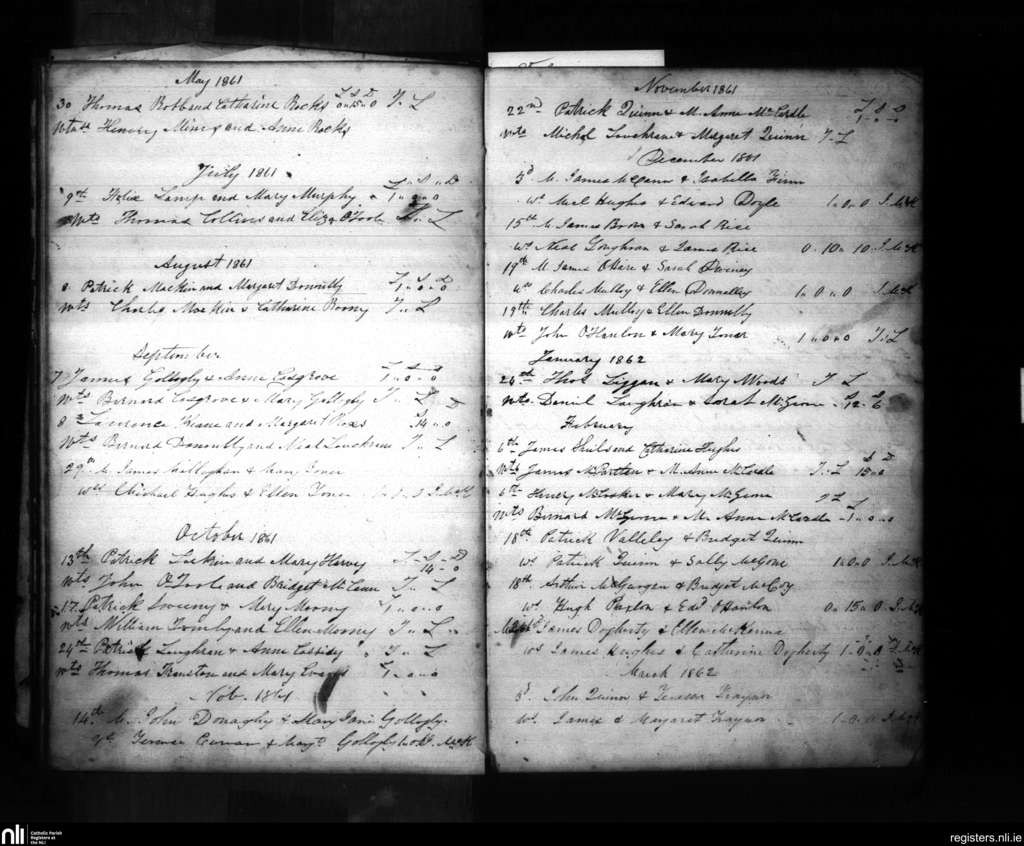 May 1861
30 Thomas Robb and Catharine Rocks £0 " 15 " 0 T. L
Wtss Henery Mines and Anne Rocks
July 1861
£ " S " D
9th Felix Lamp and Mary Murphy 1 " 0 " 0
Wts Thomas Collins and Eliza O'Tool T. L
August 1861
£ " S " D
8 Patrick Mackin and Margaret Donnelly 1 " 0 " 0
Wts Charles Mackin & Catharine Roony T " L
September
7 James Gollogly & Anne Cosgrove 1 " 0 " 0
Wts Bernard Cosgrove & Mary Gollogly T " L
8 Lawrence Keane and Margaret 14 " 0
Wts Bernard Donnelly and Neal T " L
29th M. James Callaghan & Mary Toner
Wss Michael Hughes & Ellen Toner
October 1861
£ " S " D
13th Patrick Larkin and Mary Harvey 14 " 0
Wts John O'Toole and Bridget McCann T " L
17 Patrick Sweeny & Mary Mooney 1 " 0 " 0
Wts William and Ellen Mooney T " L
24th Patrick Loughran & Anne Cassidy T " L
Wts Thomas and Mary Evans 1 " 0 " 0
Nov. 1861
14th M. John Donaghy & Mary Jane Gollogly
Terence & Mart Gollogly McK
November 1861
22nd Patrick Quinn & M. Anne McCardle 1 " 0 " 0
Wts Michal Loughran & Margaret Quinn T. L
December 1861
5th M. James McCann & Isabella Finn
Ws Neil Hughes & Edward Doyle 1 " 0 " 0 J. McK
15th M. James Born & Sarah Rice
Ws Neal Loughran & James Rice 0 " 10 " 10 J. McK
19th M. James O'Hare & Sarah Diviney
Ws Charles Mulley & Ellen Donnelley 1 " 0 " 0 J. McK
19th Charles Mulley & Ellen Donnelly
Wts John O'Hanlon & Mary Toner 1 " 0 " 0 T. L
January 1862
24th Thos Liggan & Mary Woods T L
Wts Daniel Loughrin & Sarah McGeone 12 " 6
February
6th James Shiels and Catharine Hughes
Wts James McPartlan & M. Anne McCardle T. L 15 " 0
6th Henery McCosker & Mary McGeone T L
Wts Bernard McGeone & M. Anne McCardle 1 " 0 " 0
18th Patrick Valleley & Bridget Quinn
Ws Patrick Quinn & Sally McGone 1 " 0 " 0 J. McK
18th Arthur McGaugen & Bridget McCoy
Ws Hugh Paxton & Edd O'Hanlon 0 " 15 " 0 J. McK
James Dogherty & Ellen McKenna
Ws James Hughes & Catharine Dogherty 1 " 0 " 0
March 1862
3d John Quinn & Teressa Traynor
Ws James & Margaret Traynor 1 " 0 " 0 J. McK
nli
Catholic Parish
Registers at
the NLI
registers.nli.ie